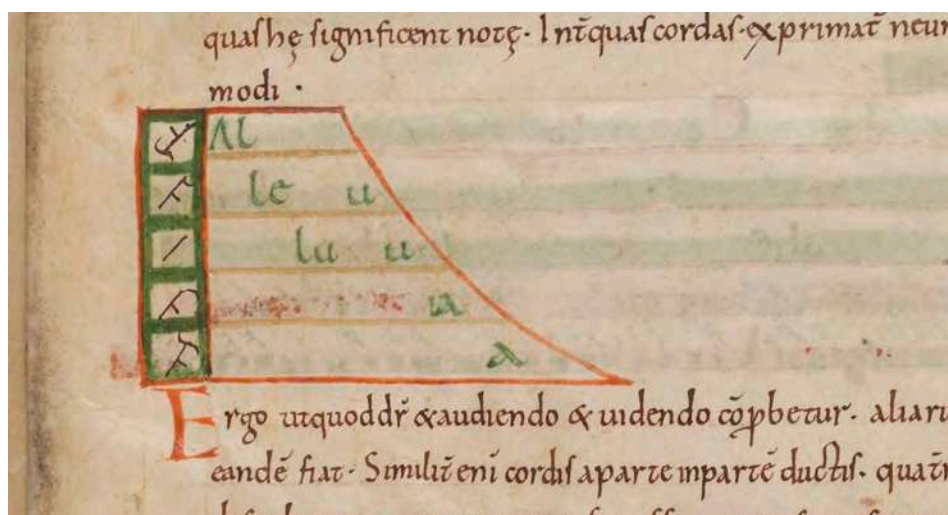 quas hę significent notę. Int̄ quas cordas. exprimat̄ neum
modi.
Al
le u
lu u
ia
a
Ergo ut quod dr̄ & audiendo & uidendo cōp̄betur. aliaru
eandē fiat. Similit̄ eni cordis a parte in partē ductis. quat̄n